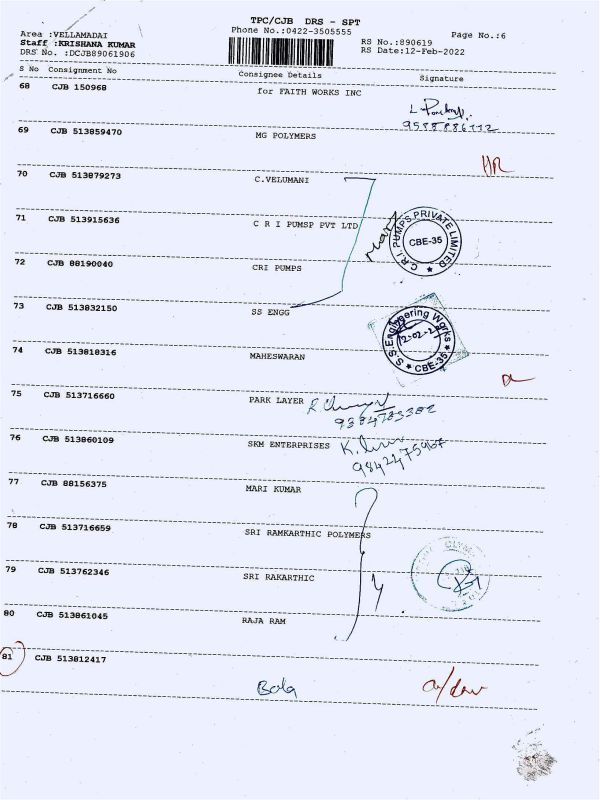 TPC/CJB DRS - SPT
Area :VELLAMADAI Phone No.:0422-3505555 Page No.:6
Staff :KRISHANA KUMAR RS No.:890619
DRS No. :DCJB89061906 RS Date:12-Feb-2022
S No Consignment No Consignee Details Signature
68 CJB 150968 for FAITH WORKS INC
69 CJB 513859470 MG POLYMERS
HR
70 CJB 513879273 C.VELUMANI
71 CJB 513915636 C R I PUMSP PVT LTD
C.R.I. PUMPS PRIVATE LIMITED
CBE-35
72 CJB 88190040 CRI PUMPS
73 CJB 513832150 SS ENGG
S.S Engineering Works
12-02-2
CBE-35
74 CJB 513818316 MAHESWARAN
75 CJB 513716660 PARK LAYER
9384783382
76 CJB 513860109 SKM ENTERPRISES
77 CJB 88156375 MARI KUMAR
78 CJB 513716659 SRI RAMKARTHIC POLYMERS
79 CJB 513762346 SRI RAKARTHIC
80 CJB 513861045 RAJA RAM
81 CJB 513812417
Bala